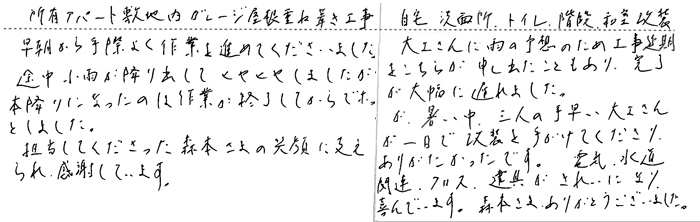 所有アパート敷地内ガレージ屋根重ね葺き工事
早朝から手際よく作業を進めてくださいました
途中小雨が降り出してヒヤヒヤしましたが
本降りになったのは作業が終了してからでホッ
としました。
担当してくださった森本さまの笑顔に支え
られ、感謝しています。
自宅 洗面所、トイレ、階段、和室改装
大工さんに雨の予想のため工事延期
をこちらが申し出たこともあり、完了
が大幅に遅れました。
が、暑い中、三人の手早い大工さん
が一日で改装を手がけてくださり、
ありがたかったです。電気、水道
関連、クロス、建具がきれいになり、
喜んでいます。森本さまありがとうございました。